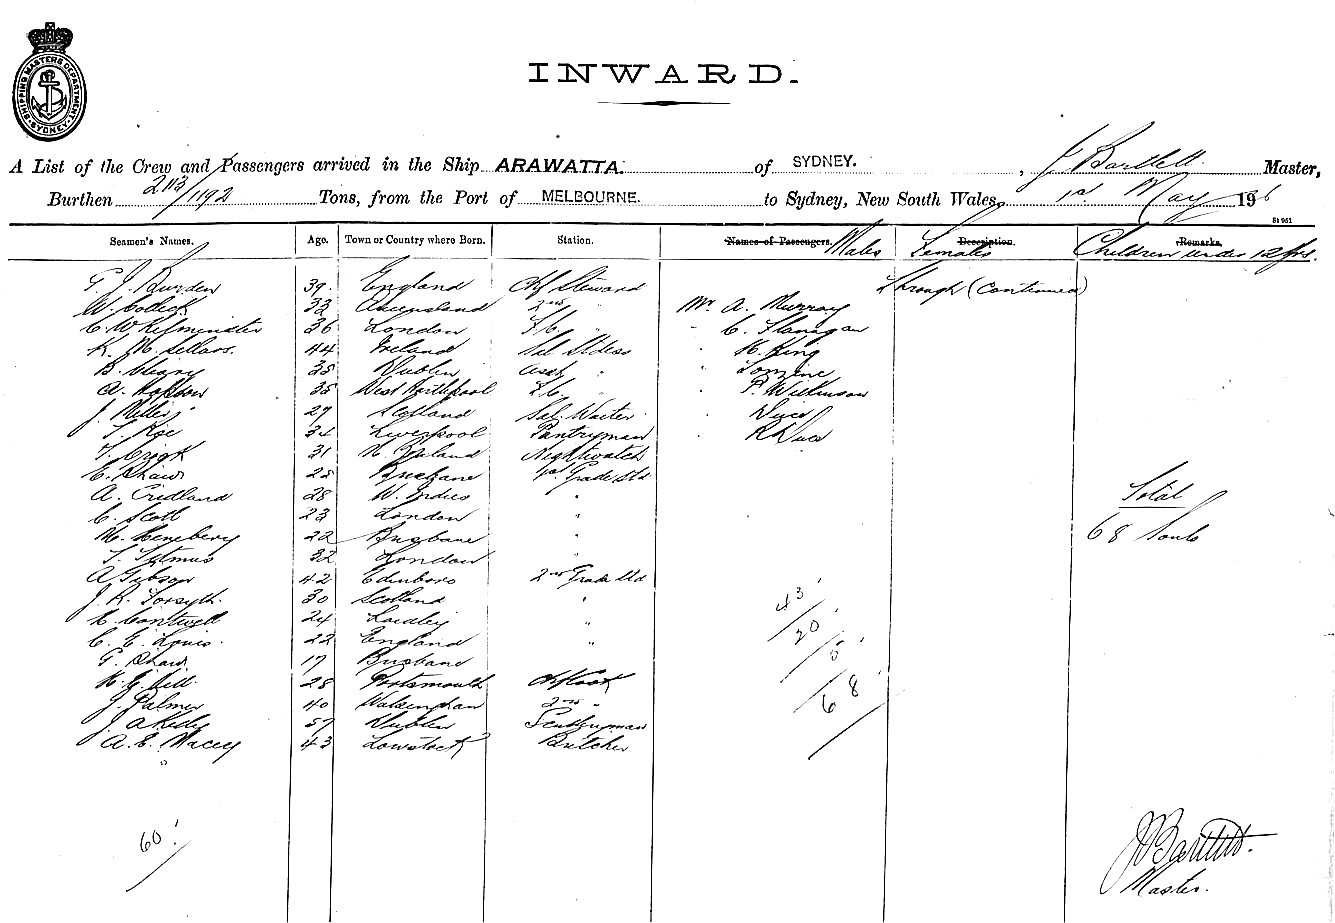 SHIPPING MASTERS DEPARTMENT SYDNEY
INWARD.
A List of the Crew and Passengers arrived in the Ship ARAWATTA. of SYDNEY. , J Bartlett Master,
Burthen 2113/1192 Tons, from the Port of MELBOURNE. to Sydney, New South Wales, 1st May 1916
S1951
Seamen's Names. Age. Town or Country where Born. Station. Names of Passengers. Males Description. Females Remarks. Children under 12 yrs.
G. J. Burden 39 England Chf Steward Through (Continued)
W. 33 Queensland 2nd " Mr. A. Murray
C. W. Kilminster 36 London F/C " " C. Flanagan
K. M. Sellars. 44 Ireland Sal Stdess " H. King
B. Cleary 35 Dublin Asst "
A. Hobson 35 West Hartlepool " " P. Wilkinson
J. Miller 27 Scotland Sal. Waiter "
T. Roe 34 Liverpool Pantryman R
T. 31 N. Zealand Nightwatch
E. Shaw 25 Brisbane 1st Grade Std
A. Cridland 28 W. Indies "
C. Scott 23 London "
M. Heneberg 22 Brisbane "
T. Titmus 32 London "
A Gibson 42 Edinboro 2nd Grade Std
J. R. Forsyth. 30 Scotland "
Cantwell 24 Laidley "
C. E. Louis. 22 England "
G. Shaw 17 Brisbane
H. G. Hill 28 Portsmouth Ch Cook
J. Palmer 40 Walsingham 2nd "
J. A Kelly 57 Dublin Scullyman
A. E. Macey 43 Lowstoft Butcher
Total
68 Souls
43
20
5
68
60
J Bartlett.
Master.